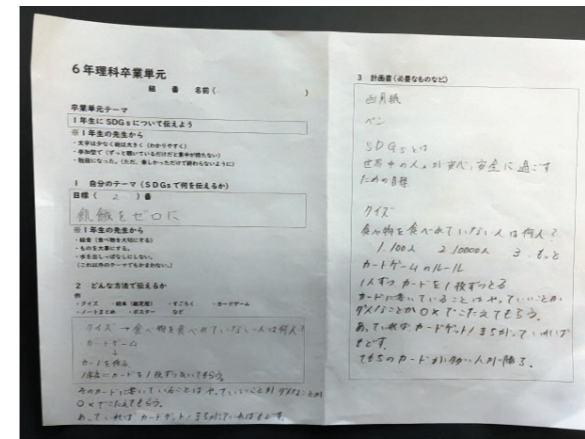 6年理科卒業単元
組 番 名前( )
卒業単元テーマ
1年生にSDGsについて伝えよう
※1年生の先生から
・文字は少なく絵は大きく(わかりやすく)
・参加型で(ずっと聴いているだけだと集中が持たない)
・勉強になった。(ただ、楽しかっただけで終わらないように)
1 自分のテーマ(SDGsで何を伝えるか)
目標( 2 )番
飢餓をゼロに
※1年生の先生から
・給食(食べ物を大切にする)
・ものを大事にする。
・水を出しっぱなしにしない。
(これ以外のテーマでもかまわない。)
2 どんな方法で伝えるか
例
・クイズ ・絵本(紙芝居) ・すごろく ・カードゲーム
・ノートまとめ ・ポスター など
クイズ→食べ物を食べれていない人は何人?
カードゲーム
↓
カードを作る
1年生にカードを1枚ずつひいてもらう。
そのカードに書いていることはやっていいことかダメなことか
○×でこたえてもらう。
あっていればカードゲット!まちがっていればもどす。
3 計画書(必要なものなど)
画用紙
ペン
SDGsとは
世界中の人。が安心、安全に過ごす
ための目標
クイズ
食べ物を食べれていない人は何人?
1.100人 2 10000人 3.もっと
カードゲームのルール
1人ずつカードを1枚ずつとる
カードに書いていることはやっていいことか
ダメなことか○×でこたえてもらう。
あっていればカードゲット!まちがっていれば
もどす。
てもちのカードが多い人が勝ち。